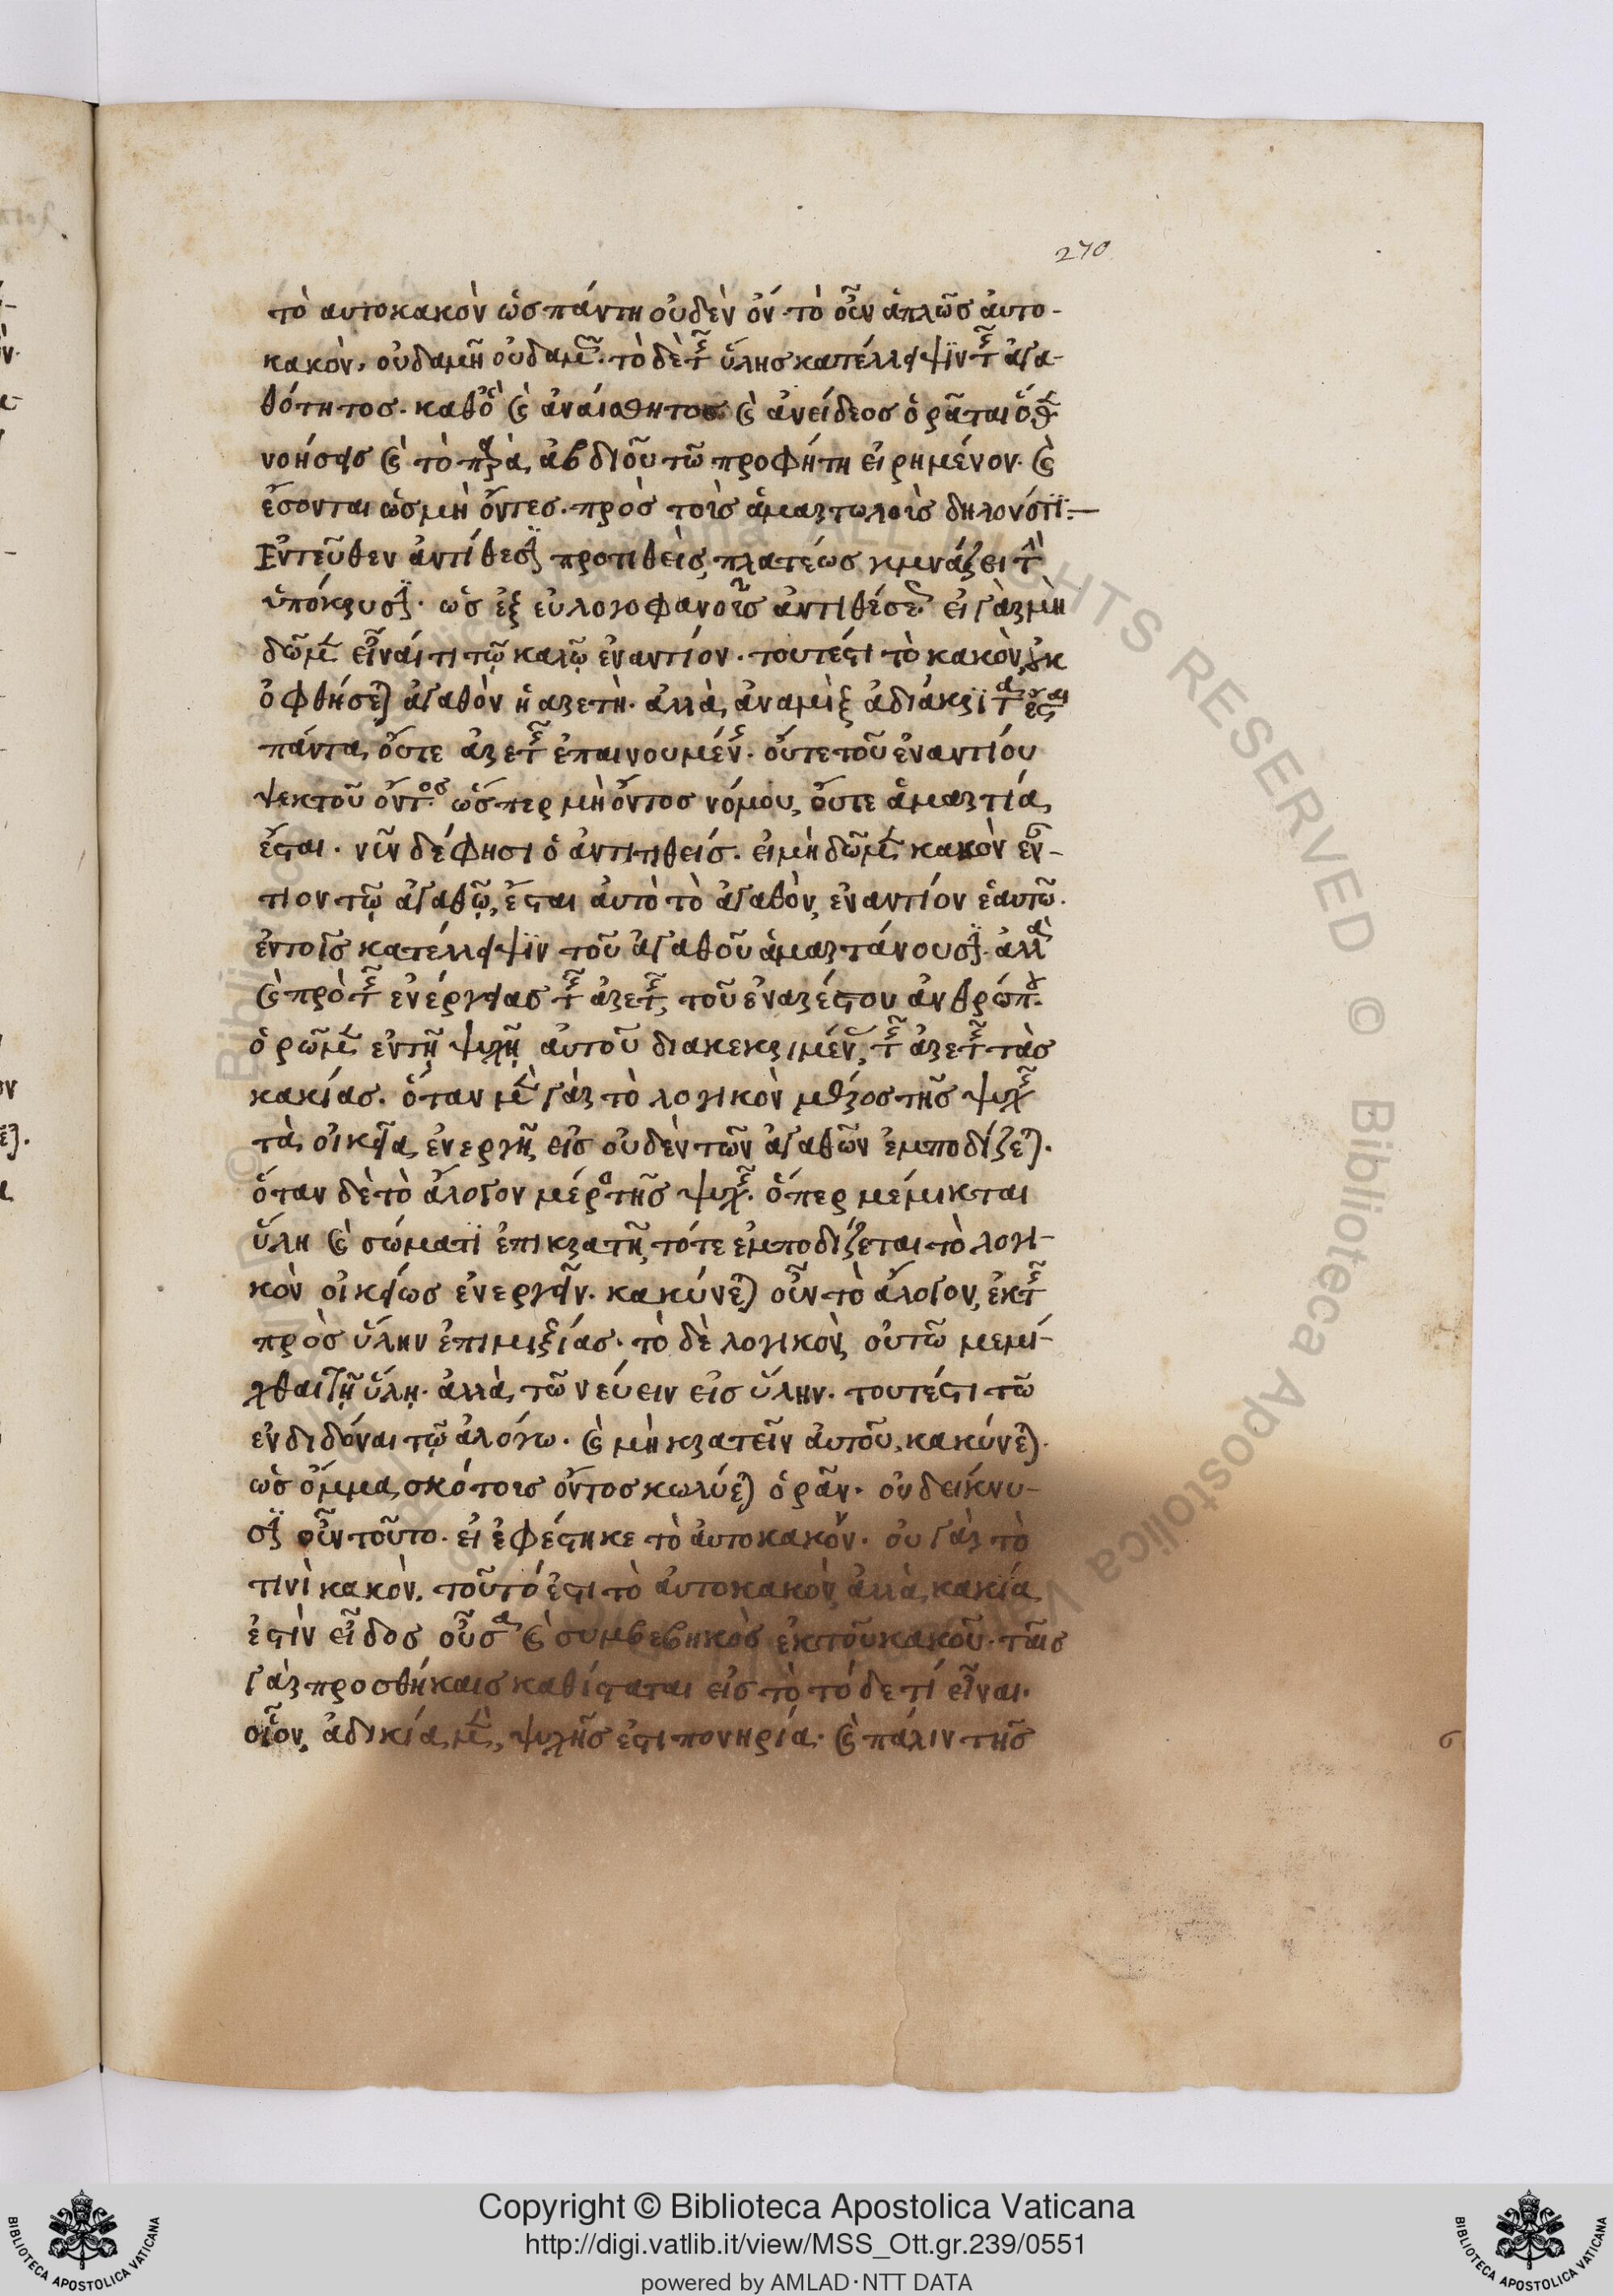 270
τὸ αυτοκακὸν ὡς πάντη οὐδὲν ὄν· τὸ οὖν ἁπλῶς ἀυτο-
κακὸν, οὐδαμῆ οὐδαμῶς· τὸ δὲ τῆς ὕλης κατέλλειψϊν τῆς ἀγα-
θότητος. καθὸ καὶ ἀναίσθητος καὶ ἀνείδεος ὁρᾶται ὅθεν
νοήσεις καὶ τὸ παρὰ ἀβδιοῦ τῶ προφήτη εἰρημένον. καὶ
ἔσονται ὡς μὴ ὄντες. πρὸς τοῖς ἁμαρτωλοῖς δηλονότϊ:—
Εντεῦθεν ἀντίθεσϊν προτιθεὶς, πλατέως γυμνάζει τὴν
ὑπόκρυσϊν· ὡς ἐξ εὐλογοφανοῦς ἀντιθέσεως εἰ γὰρ μὴ
δῶμεν εἶναί τι τῷ καλῷ ἐναντίον. τουτέστι τὸ κακὸν, οὐκ
ὀφθήσεται ἀγαθὸν ἡ αρετὴ. ἀλλὰ, ἀναμὶξ ἀδιάκρϊτα ἔσται
πάντα, οὔτε ἀρετῆς ἐπαινουμένης. οὔτε τοῦ ἐναντίου
ψεκτοῦ ὄντος ὥσπερ μὴ ὄντος νόμου, οὔτε ἁμαρτία,
ἔσται. νῦν δέ φησι ὁ ἀντιτιθείς. ει μὴ δῶμεν κακὸν ἐναν-
τιον τῷ ἀγαθῷ, ἔσται ἀυτὸ τὸ ἀγαθὸν, ἐναντίον ἑαυτῶ.
ἐν τοῖς κατέλλειψϊν τοῦ ἀγαθοῦ ἁμαρτάνουσϊν. ἀλλὰ
καὶ πρὸ τῆς ἐνέργείας τῆς ἀρετῆς, τοῦ ἐναρέστου ἀνθρώπου.
ὁρῶμεν ἐν τῇ ψυχῇ αὐτοῦ διακεκριμένης, τῆς ἀρετῆς τὰς
κακίας. ὅταν μὲν γὰρ τὸ λογικὸν μέρος τῆς ψυχῆς
τὰ, οἰκεῖα, ἐνεργῆ, εἰς οὐδὲν τῶν ἀγαθῶν ἐμποδίζεται.
ὅταν δὲ τὸ ἄλογον μέρος τῆς ψυχῆς. ὅπερ μέμικται
ὕλη καὶ σώματϊ ἐπικρατῆ, τότε ἐμποδίζεται τὸ λογι-
κὸν οἰκείως ἐνεργεῖν. κακύνεται οὖν τὸ ἄλογον, ἐκ τῆς
πρὸς ὕλην ἐπιμιξίας. τὸ δὲ λογικὸν, οὐτῶ μεμί-
χθαι τῇ ὕλῃ. ἀλλὰ, τῶ νεύειν εἰς ὕλην. τουτέστι τῶ
ἐνδιδόναι τῷ ἀλόγω. καὶ μὴ κρατεῖν ἀυτοῦ, κακύνεται.
ὡς ὄμμα, σκότοις ὄντος κωλύεται ὁρᾶν. οὐ δείκνυ-
σϊν οὖν τοῦτο. εἰ ἐφέστηκε τὸ ἀυτοκακὸν. οὐ γὰρ τὸ
τινὶ κακὸν, τοῦτό ἐστι τὸ ἀυτοκακὸν, ἀλλὰ, κακία,
ἐστὶν εἶδος οὖσα καὶ συμβεβηκὸς ἐκ τοῦ κακοῦ. ταῖς
γὰρ προσθήκαις καθίσταται εἰς τὸ τόδε τί εἶναι.
οἷον, ἀδικία, μὲν, ψυχῆς ἐστι πονηρία. καὶ πάλιν τῆς
Copyright © Biblioteca Apostolica Vaticana
http://digi.vatlib.it/view/MSS_Ott.gr.239/0551
powered by AMLAD·NTT DATA